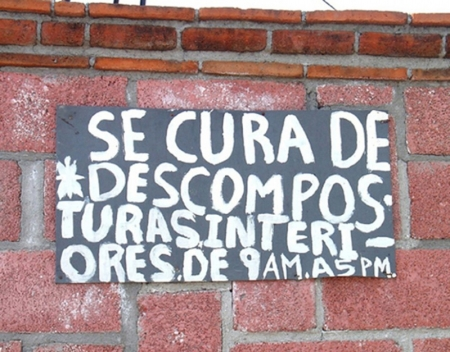 SE CURA DE
*DESCOMPOS.
TURAS.INTERI-
ORES.DE 9AM.A5PM.